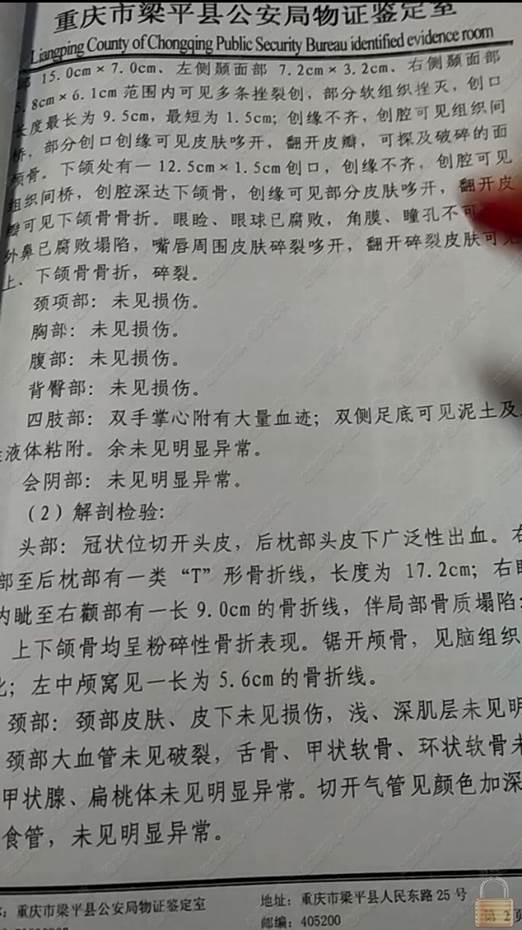 重庆市梁平县公安局物证鉴定室
Liangping County of Chongqing Public Security Bureau identified evidence room
15.0cm×7.0cm、左侧颞面部 7.2cm×3.2cm、右侧颞面部
.8cm×6.1cm 范围内可见多条挫裂创，部分软组织挫灭，创口
长度最长为 9.5cm，最短为 1.5cm；创缘不齐，创腔可见组织间
桥，部分创口创缘可见皮肤哆开，翻开皮瓣，可探及破碎的面
颅骨。下颌处有一 12.5cm×1.5cm 创口，创缘不齐，创腔可见
组织间桥，创腔深达下颌骨，创缘可见部分皮肤哆开，翻开皮
瓣可见下颌骨骨折。眼睑、眼球已腐败，角膜、瞳孔不可
外鼻已腐败塌陷，嘴唇周围皮肤碎裂哆开，翻开碎裂皮肤可见
上、下颌骨骨折，碎裂。
颈项部：未见损伤。
胸部：未见损伤。
腹部：未见损伤。
背臀部：未见损伤。
四肢部：双手掌心附有大量血迹；双侧足底可见泥土及
液体粘附。余未见明显异常。
会阴部：未见明显异常。
（2）解剖检验：
头部：冠状位切开头皮，后枕部头皮下广泛性出血。右
部至后枕部有一类“T”形骨折线，长度为 17.2cm；右
内眦至右颧部有一长 9.0cm 的骨折线，伴局部骨质塌陷；
上下颌骨均呈粉碎性骨折表现。锯开颅骨，见脑组织
化；左中颅窝见一长为 5.6cm 的骨折线。
颈部：颈部皮肤、皮下未见损伤，浅、深肌层未见明
颈部大血管未见破裂，舌骨、甲状软骨、环状软骨未
甲状腺、扁桃体未见明显异常。切开气管见颜色加深
食管，未见明显异常。
：重庆市梁平县公安局物证鉴定室
地址：重庆市梁平县人民东路 25 号
邮编：405200
第 2 页